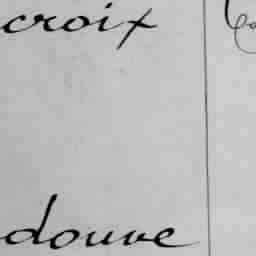 croix
douve